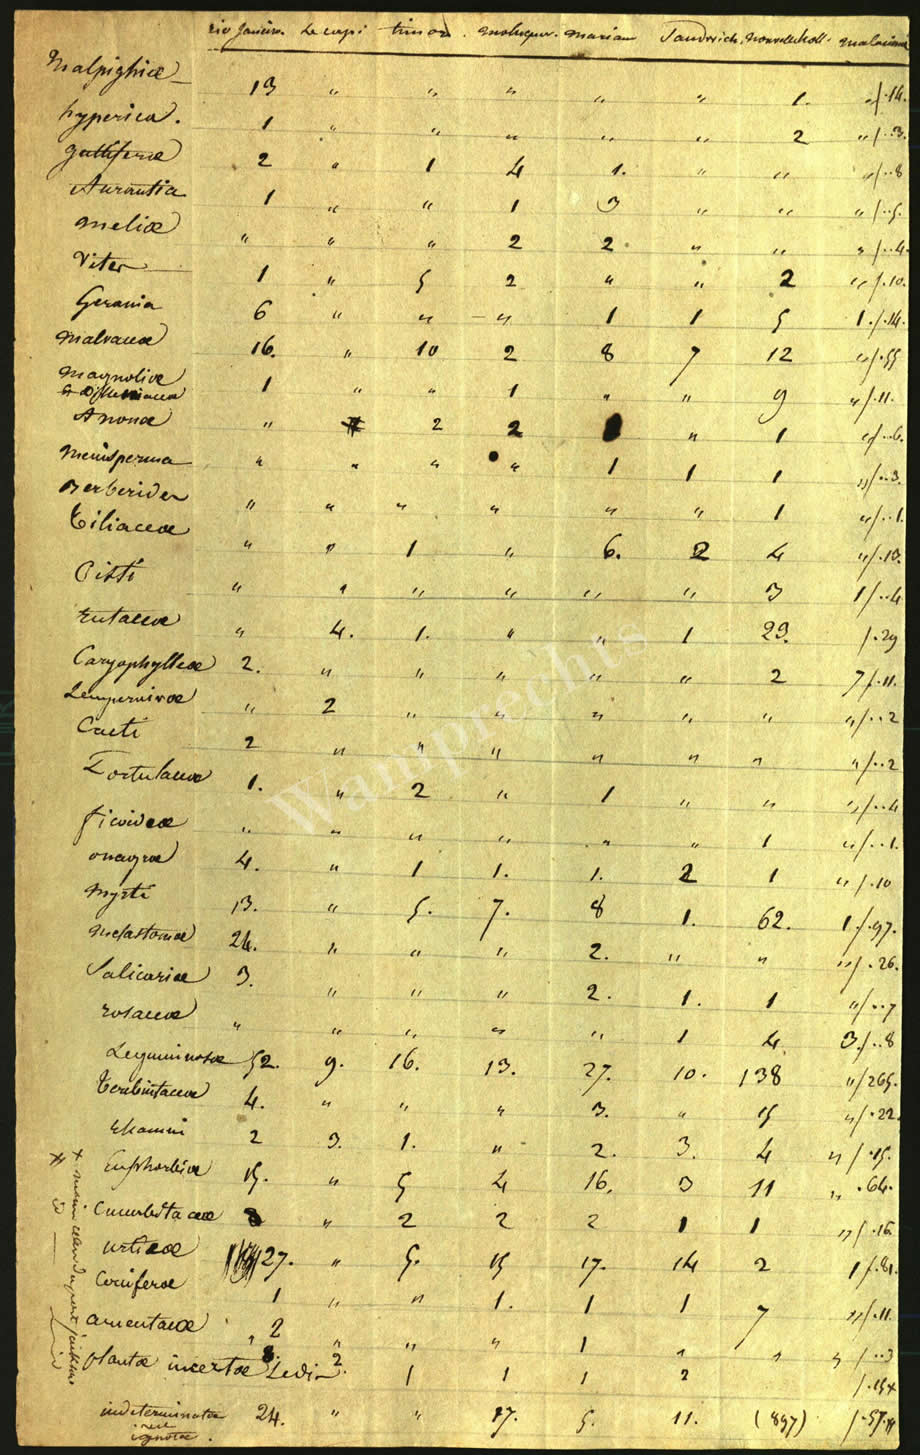 rio Janeiro. Le cap timor. moluques. marian Sandwich. nouvelle holl. malouines
Malpighiæ 13 " " " " " 1. "/.14.
hyperica. 1 " " " " " 2 "/..3.
guttiferæ 2 " 1 4 1. " " "/..8
Aurantia 1 " " 1 3 " " "/..5.
meliæ " " " 2 2 " " "/..4.
Vites 1 " 5 2 " " 2 "/.10.
Gerania 6 " " " 1 1 5 1./.14.
malvaceæ 16. " 10 2 8 7 12 "/.55
magnoliæ
& Dilleniaceæ 1 " " 1 " " 9 "/.11.
Anonæ " 2 2 " 1 "/..6.
menisperma " " " " 1 1 1 "/..3.
Berberides " " " " " " 1 "/..1.
tiliaceæ " " 1 " 6. 2 4 "/.13.
Cisti " " " " " " 3 1/..4
rutaceæ " 4. 1. " " 1 23. /.29
Caryophylleæ 2. " " " " " 2 7/.11.
Sempervivæ " 2 " " " " " "/..2
Cacti 2 " " " " " " "/..2
Portulaceæ 1. " 2 " 1 " " "/..4
ficoideæ " " " " " " 1 "/..1.
onagræ 4. " 1 1. 1. 2 1 "/.10
myrti 13. " 5. 7. 8 1. 62. 1./.97.
melastomæ 24. " " " 2. " " "/.26.
Salicariæ 3. " " " 2. 1. 1 "/..7
rosaceæ " " " " " 1 4 3./..8
Leguminosæ 52. 9. 16. 13. 27. 10. 138 "/265.
terebintaceæ 4. " " " 3. " 15 "/.22.
Rhamni 2 3. 1. " 2. 3. 4 "/.15.
Euphorbiæ 15. " 5 4 16. 3 11 " .64.
Cucurbitaceæ 8 " 2 2 2 1 1 "/.16.
urticæ 27. " 5. 15 17. 14 2 1/.81.
Coniferæ 1 " " 1. 1 1 7 "/.11.
amentaceæ 2 " " " 1 " " "/..3
plantæ incertæ Sedis 8. 2. 1 1 1 2 /.15+
indeterminatæ
vel
ignotæ. 24. " " 17. 5. 11. (897) /.57.#
Wamprechts